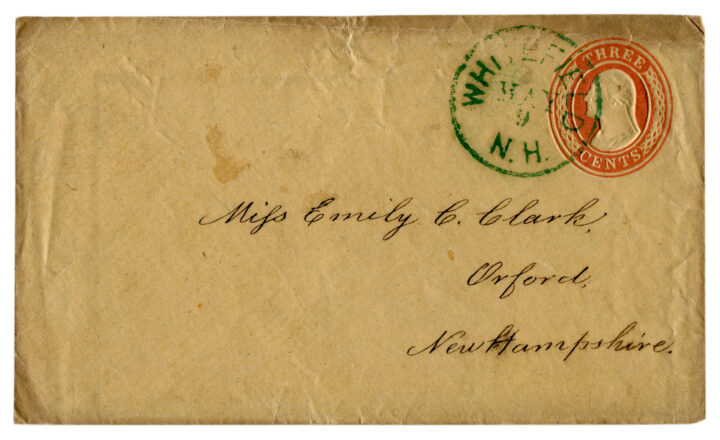 WHITEFIELD
MAY
9
N.H.
THREE
CENTS
Miſs Emily C. Clark,
Orford,
New Hampshire.